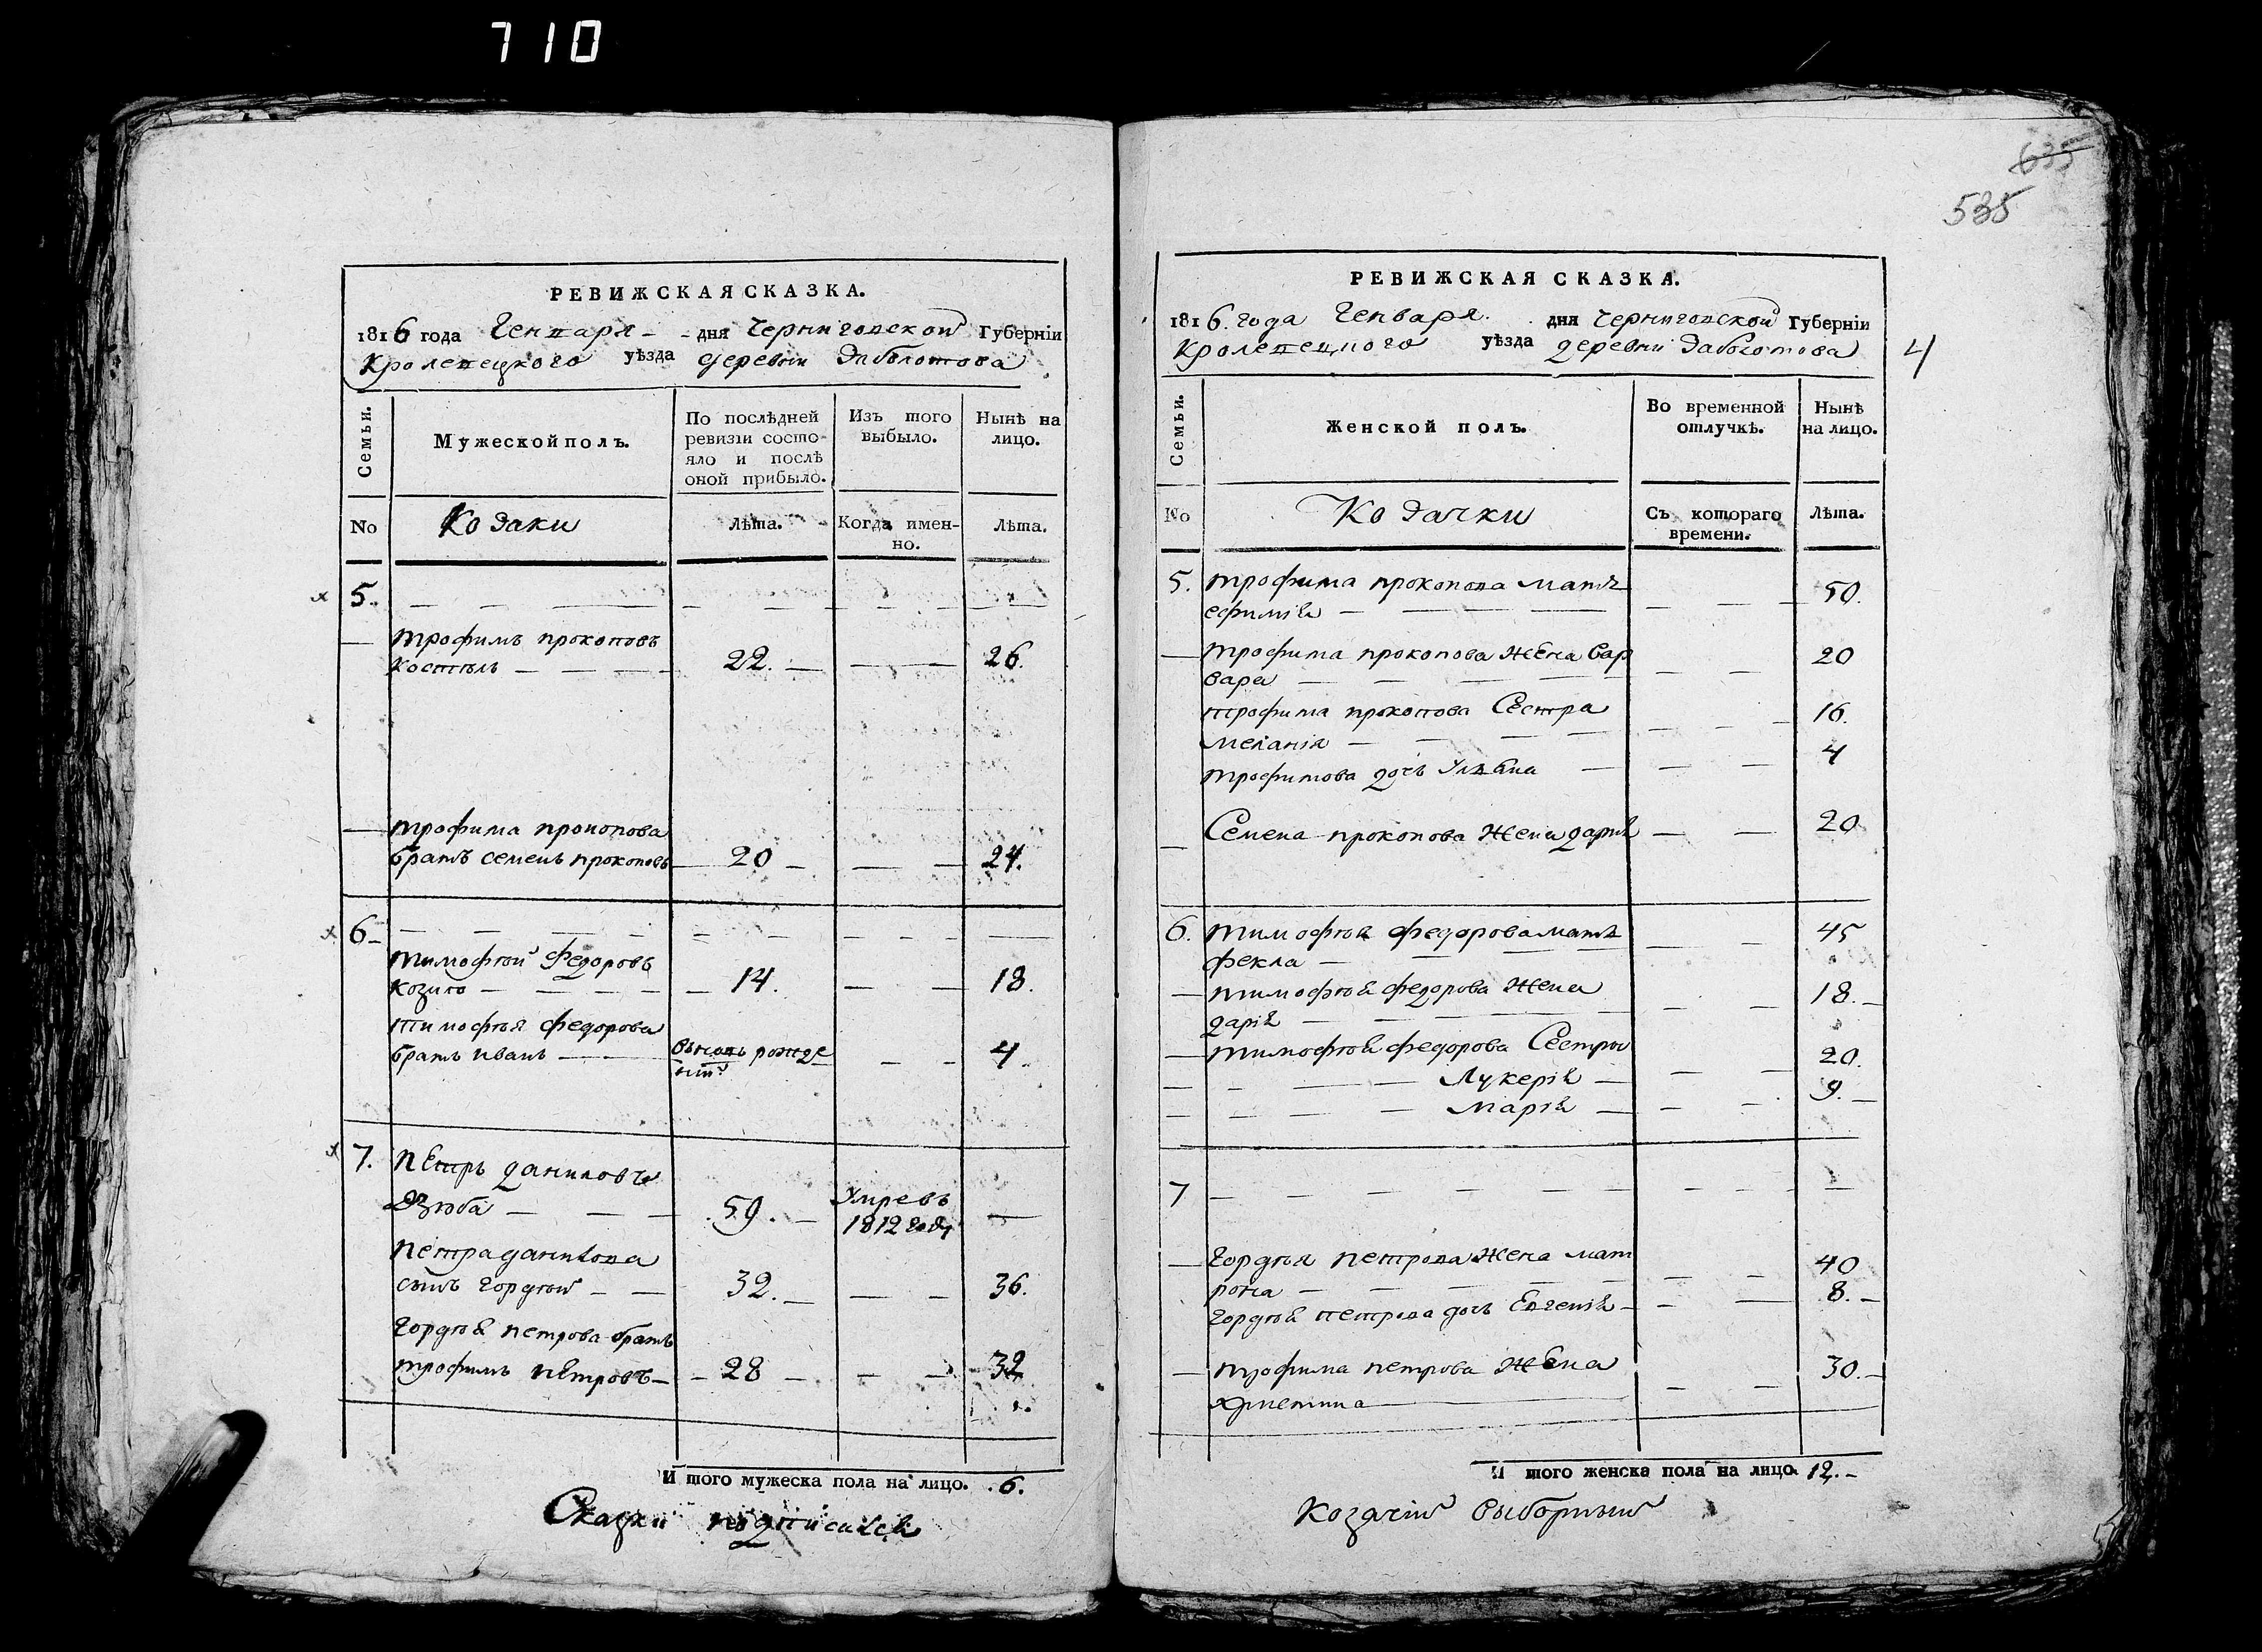 710
635
535
РЕВИЖСКАЯ СКАЗКА.
1816 года Генваря дня Черниговской Губерніи
Кролевецкого уѣзда деревни Заболотова
Семьи.
Мужеской полъ.
По послѣдней ревизіи состо-
яло и послѣ оной прибыло.
Изъ того выбыло.
Нынѣ на лицо.
No
Козаки
лѣта.
Когда имен-
но.
Лѣта.
5.
Трофимъ прокоповъ
22. 26.
трофима прокопова
братъ семенъ прокоповъ 20 24.
6
тимофѣй Федоровъ
козило 14. 18.
тимофѣя федорова
братъ иванъ 4
7. Петръ даниловъ
Дзюба 59. Умре въ
1812 году
петра данилова
сынъ гордѣй 32. 36.
гордѣя петрова братъ
трофимъ петровъ 28 32
И того мужеска пола на лицо. 6.
Сказки подписалъ
РЕВИЖСКАЯ СКАЗКА.
1816. года Генваря дня Черниговской Губерніи
Кролевецкого уѣзда деревни Заболотова
4
Семьи.
Женской полъ.
Во временной
отлучкѣ.
Нынѣ
на лицо.
No
Козачки
Съ котораго
времени.
Лѣта.
5. трофима прокопова мать 50.
ефимія
трофима прокопова жена вар 20
вара
трофима прокопова Сестра 16.
меланія
трофимова дочь Уляна 4
Семена прокопова жена дарія 20
6. тимофѣя федорова мать 45
фекла
тимофѣя федорова жена 18.
дарія
тимофѣя федорова Сестры
Лукерія 20.
марія 9.
7
гордѣя петрова жена мат 40
рона
гордѣя петрова дочь Евгенія 8.
трофима петрова жена 30.
Христина
И того женска пола на лицо. 12.
Козачій выборный